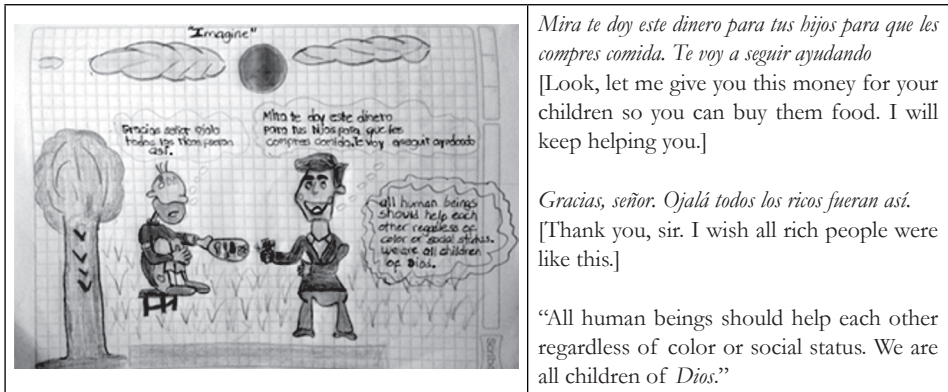 "Imagine"
Gracias señor ojala
todos los ricos fueran
asi.
Mira te doy este dinero
para tus hijos para que les
compres comida. Te voy a seguir ayudando
all human beings
should help each
other regardless of
color or social status.
we are all children
of Dios.
Mira te doy este dinero para tus hijos para que les
compres comida. Te voy a seguir ayudando
[Look, let me give you this money for your
children so you can buy them food. I will
keep helping you.]
Gracias, señor. Ojalá todos los ricos fueran así.
[Thank you, sir. I wish all rich people were
like this.]
“All human beings should help each other
regardless of color or social status. We are
all children of Dios.”